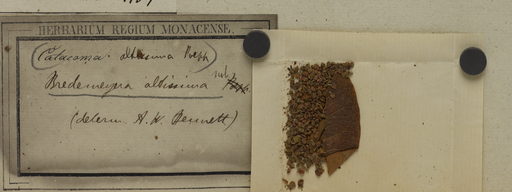 HERBARIUM REGIUM MONACENSE.
Catacoma altissima Poepp
Bredemeyera altissima
(determ. A. W. Bennett)